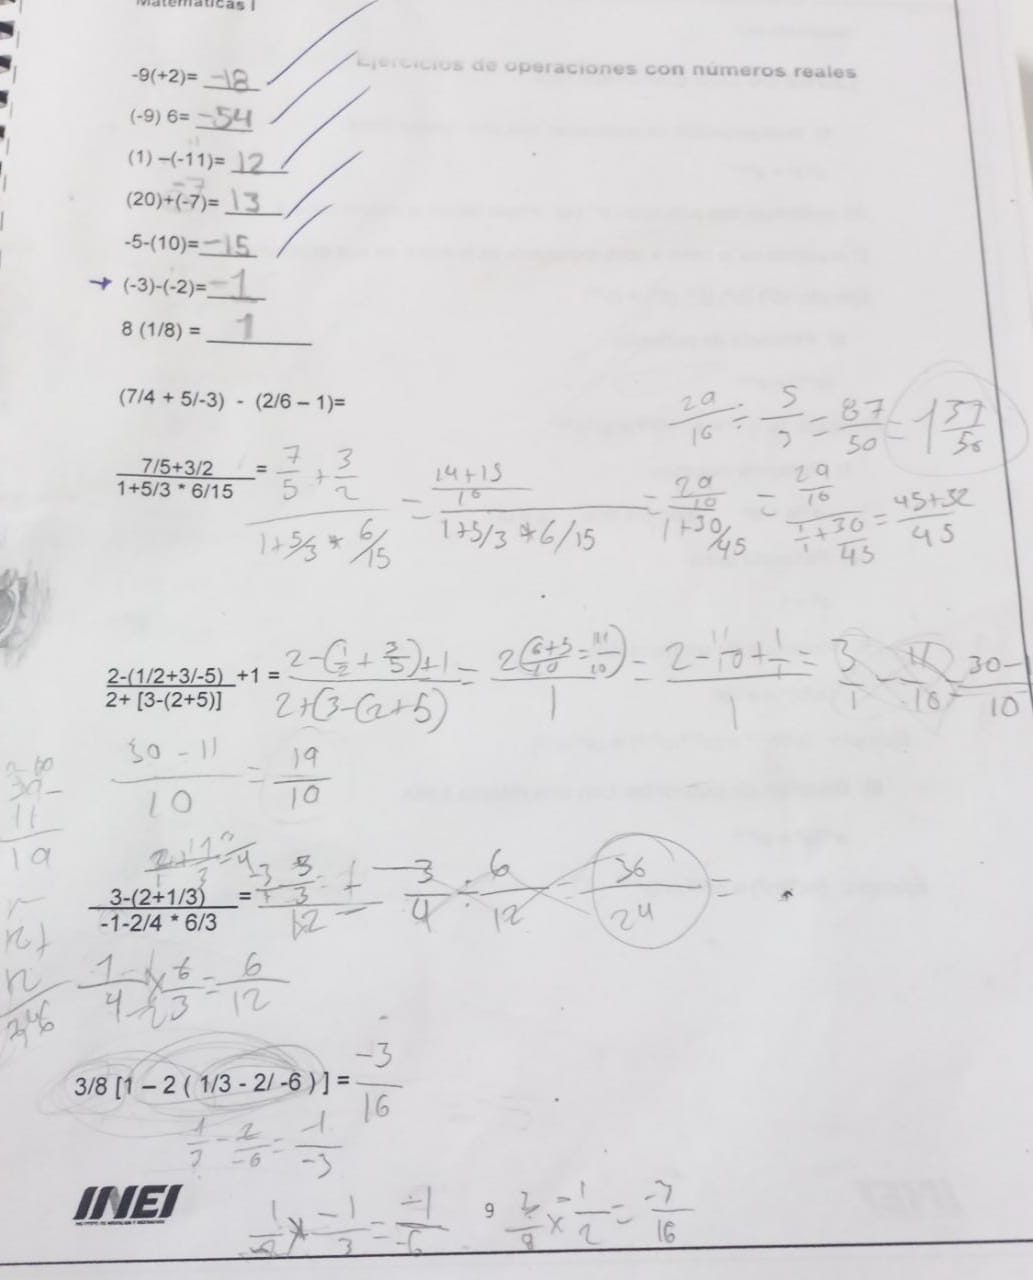 Matemáticas I
Ejercicios de operaciones con números reales
-9(+2)= -18
(-9) 6= -54
(1) –(-11)= 12
(20)+(-7)= 13
-5-(10)= -15
(-3)-(-2)= -1
8 (1/8) = 1
(7/4 + 5/-3) - (2/6 – 1)=
29/16 ÷ 5/3 = 87/50 = 1 37/50
7/5+3/2 / 1+5/3 * 6/15 = 7/5 + 3/2 / 1+5/3 * 6/15 = 14+15/10 / 1+5/3*6/15 = 29/10 / 1+30/45 = 29/10 / 1/1 + 30/45 = 45+32/45
2-(1/2+3/-5) / 2+ [3-(2+5)] +1 = 2-(1/2 + 3/5)+1 / 2+(3-(2+5) = 2(6+5/10 = 11/10) / 1 = 2-11/10 + 1/1 / 1 = 3/1 - 11/10 = 30- / 10
30-11 / 10 = 19/10
3-(2+1/3) / -1-2/4 * 6/3 =
-3/4 ÷ 6/12 = 36/24 =
6/3 = 6/12
3/8 [1 – 2 ( 1/3 - 2/ -6 ) ] = -3/16
1/3 - 2/-6 = -1/-3
INEI
-1/3 = -1/-6
9
-1/2 = -3/16